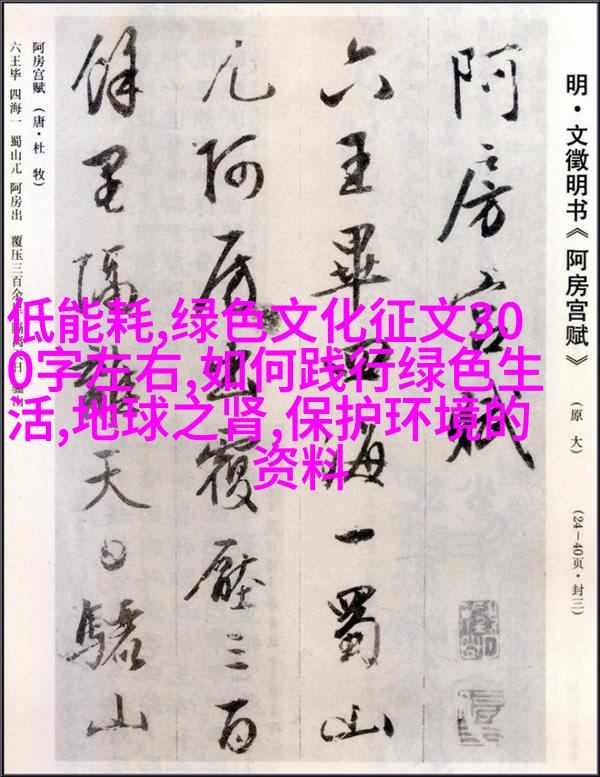 明·文徵明书《阿房宫赋》
(原大)
(24—40页·封三)
阿房宫赋
六王畢四海一蜀山
兀阿房出覆壓三百
餘里隔離天日驪山
阿房宫赋(唐·杜牧)
六王毕 四海一 蜀山兀 阿房出 覆压三百余
低能耗,绿色文化征文30
0字左右,如何践行绿色生
活,地球之肾,保护环境的
资料